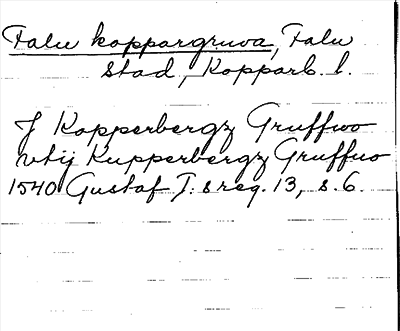 Falu koppargruva, Falu
stad, Kopparb. l.
J Kopperbergz Gruffwo
vtij Kupperbergz Gruffuo
1540 Gustaf I:s reg. 13, s. 6.